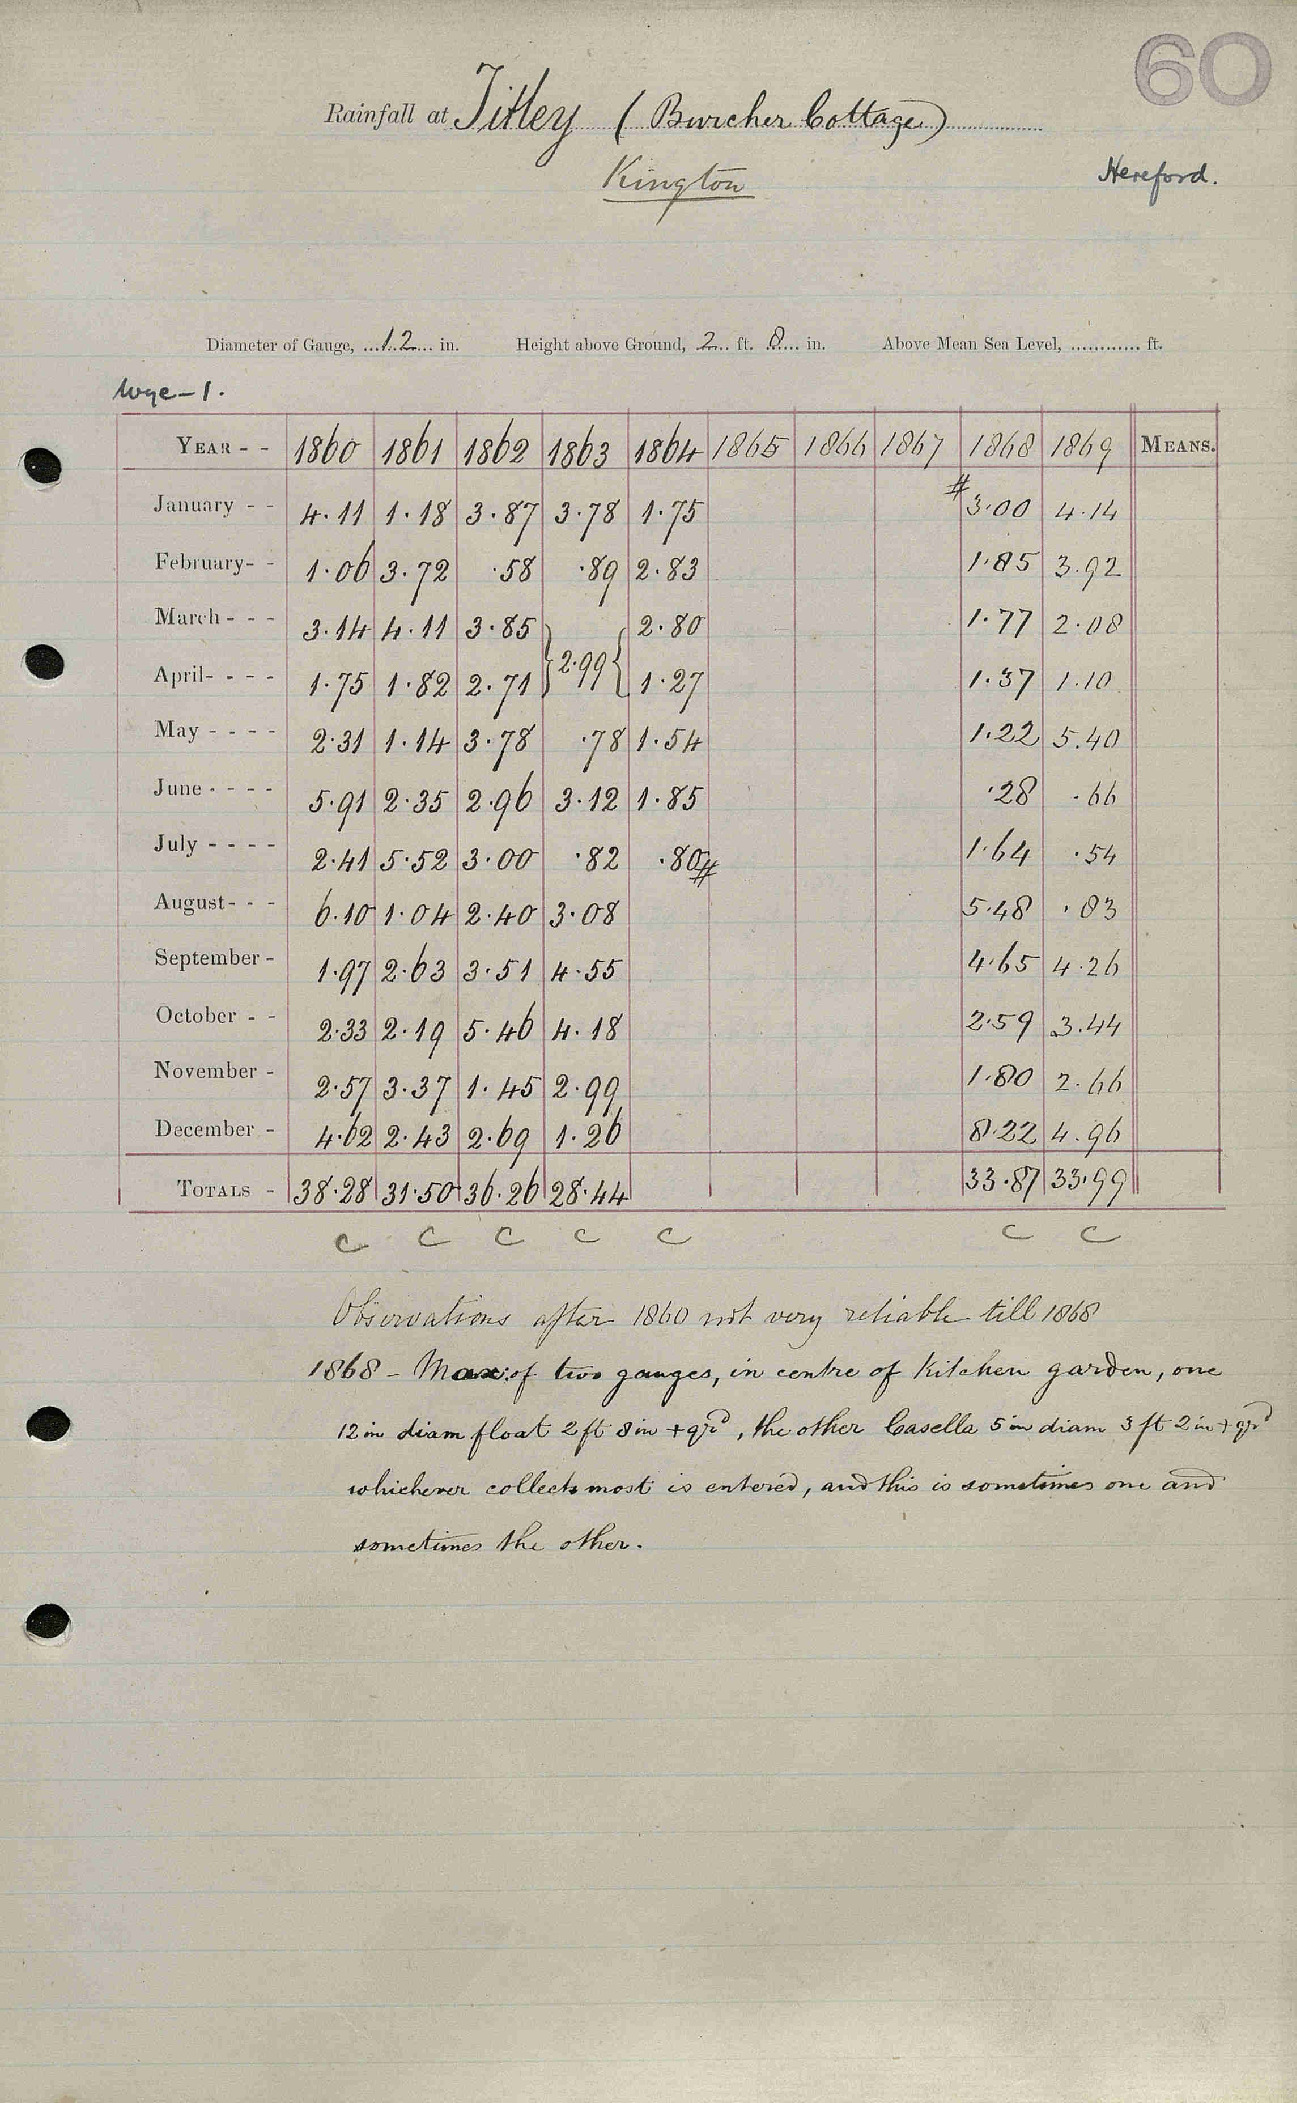 60
Rainfall at Titley (Burcher Cottage)
Kington
Hereford.
Diameter of Gauge, ...12... in. Height above Ground, 2... ft. 8... in. Above Mean Sea Level, ............ ft.
Wye - 1.
YEAR - - 1860 1861 1862 1863 1864 1865 1866 1867 1868 1869 MEANS.
January - - 4.11 1.18 3.87 3.78 1.75 # 3.00 4.14
February - - 1.06 3.72 .58 .89 2.83 1.85 3.92
March - - - 3.14 4.11 3.85 } { 2.80 1.77 2.08
April - - - - 1.75 1.82 2.71 } 2.99 { 1.27 1.37 1.10
May - - - - 2.31 1.14 3.78 .78 1.54 1.22 5.40
June - - - - 5.91 2.35 2.96 3.12 1.85 .28 .66
July - - - - 2.41 5.52 3.00 .82 .80 # 1.64 .54
August - - - 6.10 1.04 2.40 3.08 5.48 .83
September - 1.97 2.63 3.51 4.55 4.65 4.26
October - - 2.33 2.19 5.46 4.18 2.59 3.44
November - 2.57 3.37 1.45 2.99 1.80 2.66
December - 4.62 2.43 2.69 1.26 8.22 4.96
TOTALS - 38.28 31.50 36.26 28.44 33.87 33.99
C C C C C C C
Observations after 1860 not very reliable till 1868
1868 - Max: of two gauges, in centre of Kitchen garden, one
12 in diam float 2 ft 8 in + grd, the other Casella 5 in diam 3 ft 2 in + grd
whichever collects most is entered, and this is sometimes one and
sometimes the other.